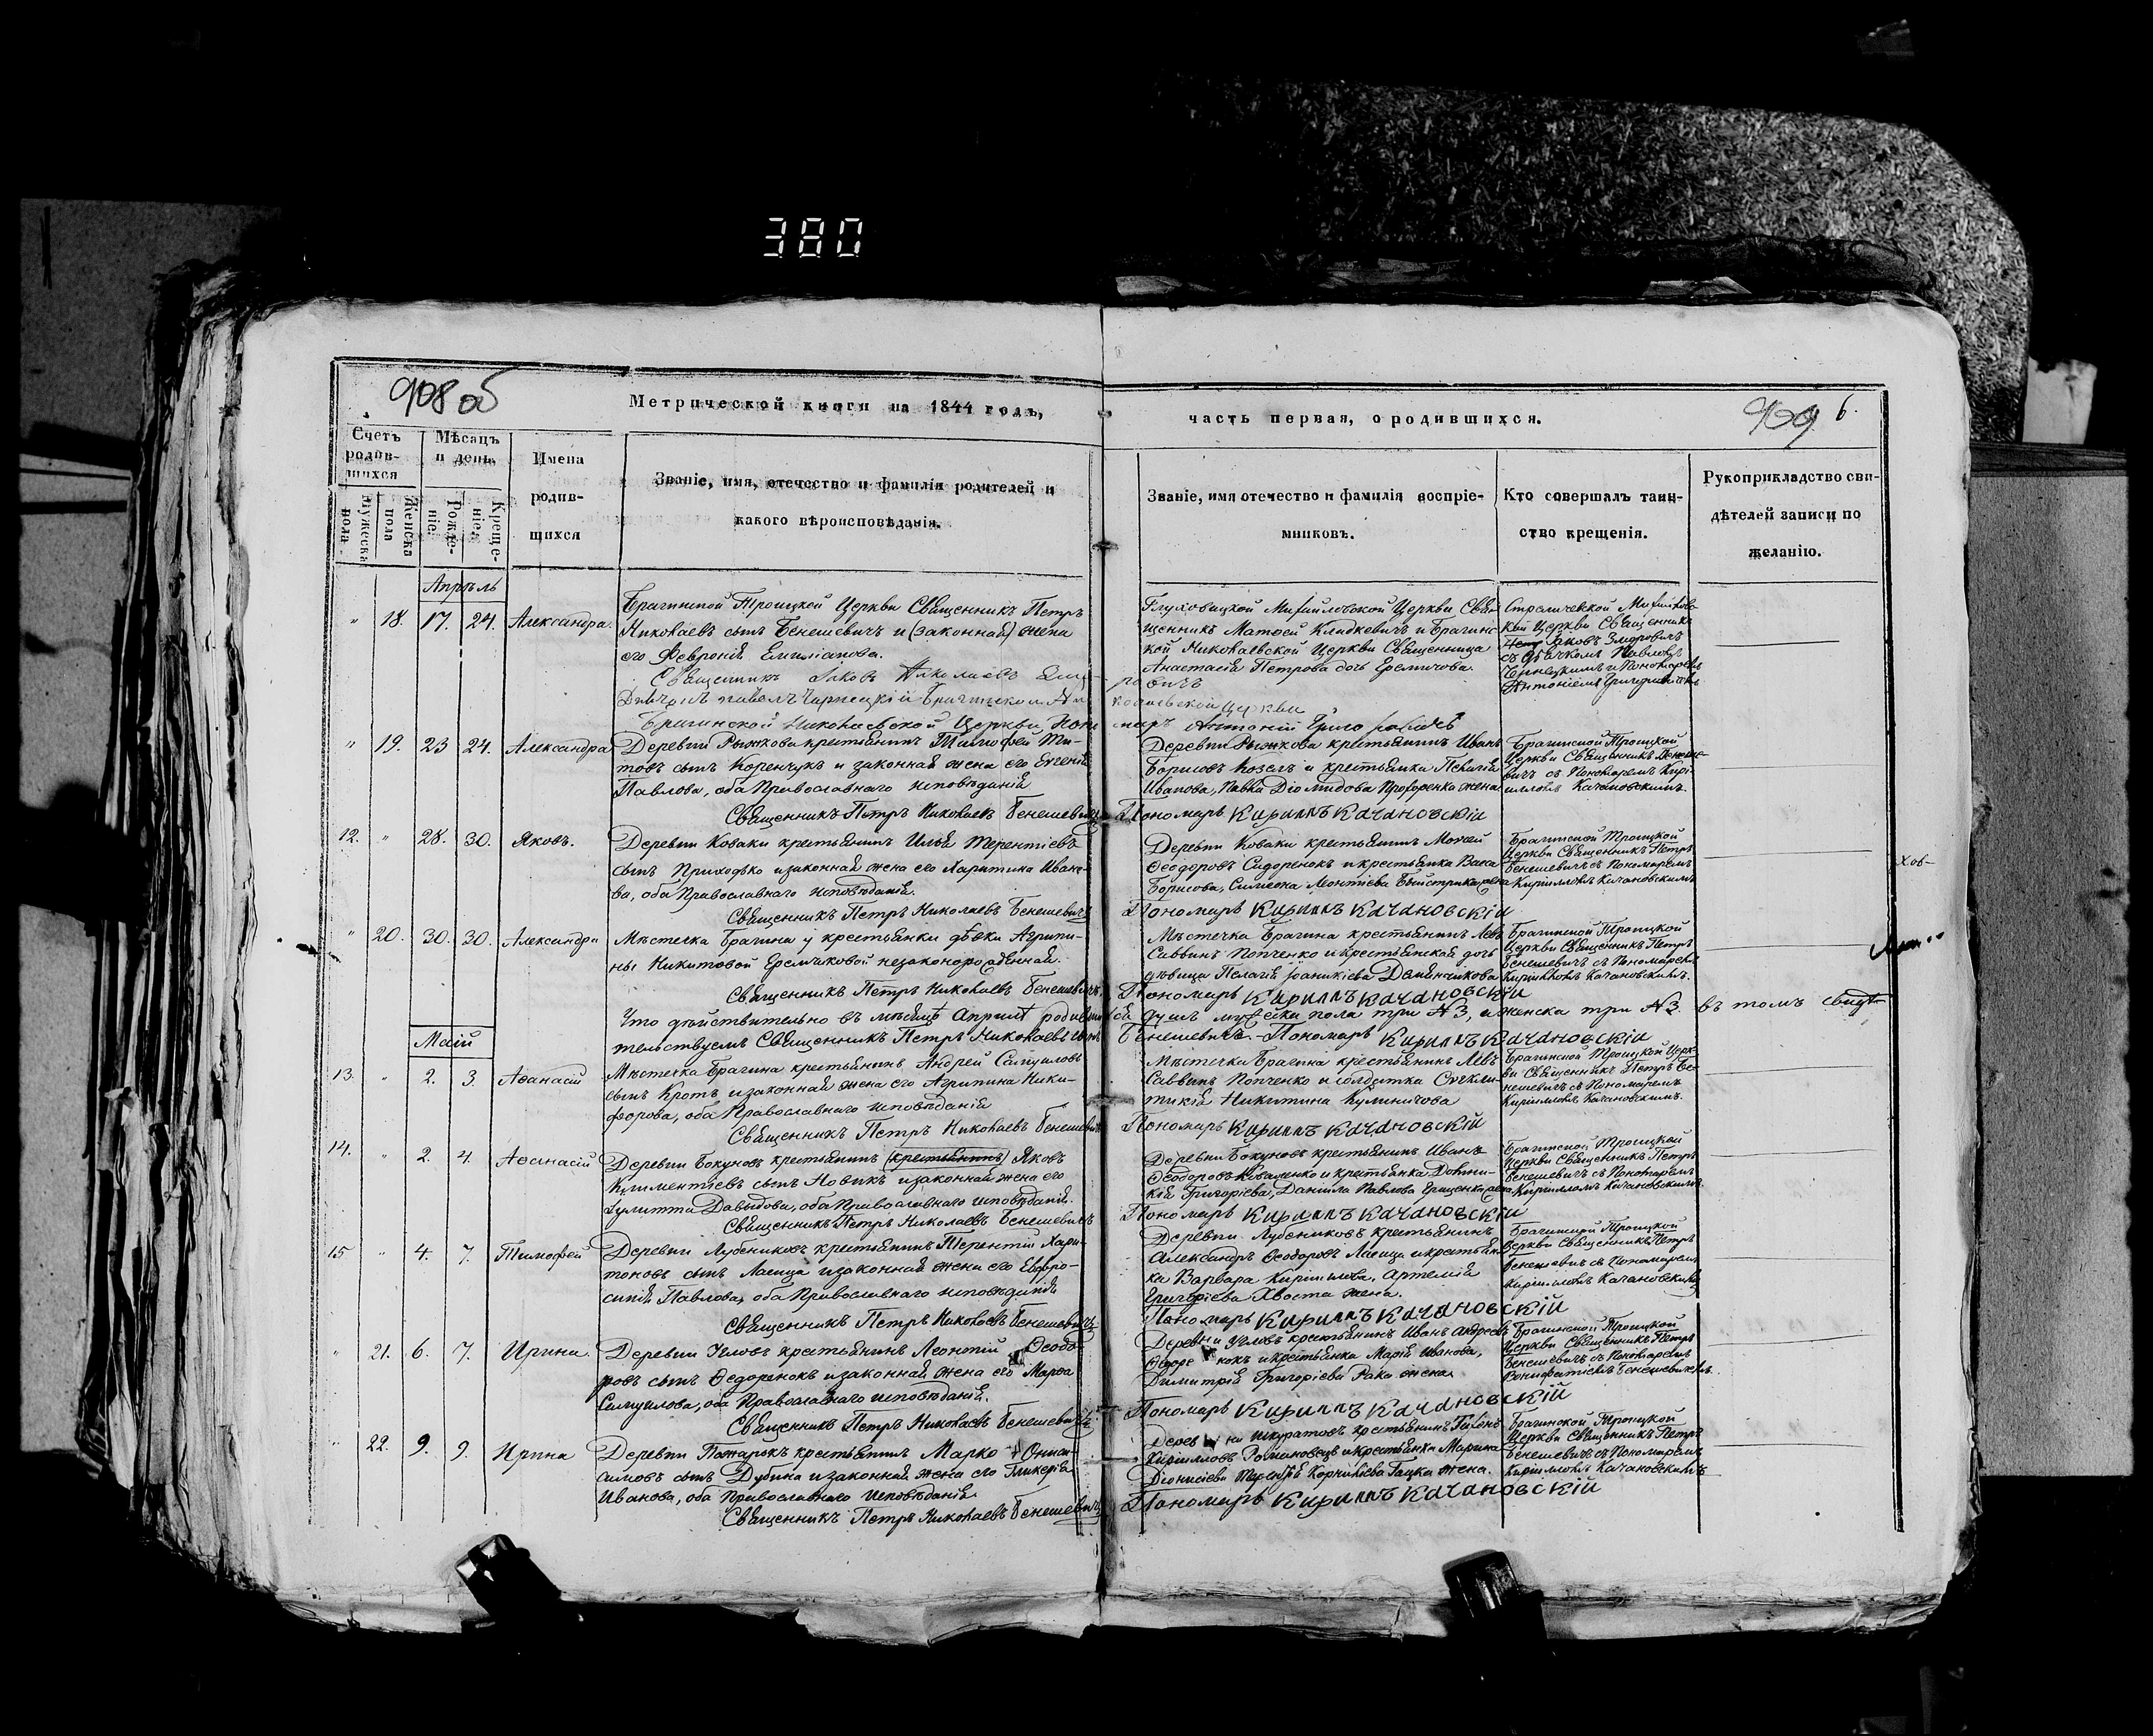 380
908 об
Метрической книги на 1844 годъ,
часть первая, о родившихся.
909
6.
Счетъ родив-шихся
Мѣсяцъ и день.
Имена родив-шихся
Званіе, имя, отечество и фамилія родителей и какого вѣроисповѣданія.
Званіе, имя отечество и фамилія воспріе-мниковъ.
Кто совершалъ таин-ство крещенія.
Рукоприкладство сви-дѣтелей записи по желанію.
Мужеска пола
Женска пола
Рожде-ніе.
Креще-ніе.
Апрѣль
" 18. 17. 24. Александра.
Брагинской Троицкой Церкви Священникъ Петръ
Николаевъ сынъ Бенешевичъ и (законная) жена
его Февронія Емиліанова.
Священникъ Яковъ Николаевъ
Брагинской Николаевской Церкви Поно
Глуховицкой Михайловской Церкви Свя-
щенникъ Матѳей Клидкевичъ и Брагинс-
кой Николаевской Церкви Священница
Анастасія Петрова дочь Еремичова.
колаевской Церкви
марь Антоній Григоровичъ
Стреличевской Михайлов-
кой Церкви Священникъ
Яковъ Змѣровичъ
съ Дьячкомъ Павломъ
Чернецкимъ и Пономаремъ
Антоніемъ Григоровичемъ
" 19. 23 24. Александра
Деревни Рыжкова крестьянинъ Тимофей Ти-
товъ сынъ Коренчукъ и законная жена его Евгенія
Павлова, оба Православнаго исповѣданія
Священникъ Петръ Николаевъ Бенешевичъ
Деревни Рыжкова крестьянинъ Иванъ
Борисовъ Козелъ и крестьянка Пелагія
Иванова, Павла Діомидова Прохоренка жена
Пономарь Кириллъ Качановскій
Брагинской Троицкой
Церкви Священникъ Бенеше-
вичъ съ Пономаремъ Кири-
илломъ Качановскимъ.
12. " 28. 30. Яковъ.
Деревни Коваки крестьянинъ Илья Терентіевъ
сынъ Приходько и законная жена его Харитина Ивано-
ва, оба Православнаго исповѣданія.
Священникъ Петръ Николаевъ Бенешевичъ
Деревни Коваки крестьянинъ Мокей
Ѳеодоровъ Сидоренокъ и крестьянка Васса
Борисова, Симеона Леонтіева Быстрика жена
Пономарь Кириллъ Качановскій
Брагинской Троицкой
Церкви Священникъ Петръ
Бенешевичъ съ Пономаремъ
Кирилломъ Качановскимъ
" 20. 30. 30. Александра
Мѣстечка Брагина у крестьянки дѣвки Агрипи-
ны Никитовой Еремчиковой незаконорожденная.
Священникъ Петръ Николаевъ Бенешевичъ.
Мѣстечка Брагина крестьянинъ Левъ
Саввинъ Попченко и крестьянская дочь
дѣвица Пелагія Іоаникіева Деменчикова
Пономарь Кириллъ Качановскій
Брагинской Троицкой
Церкви Священникъ Петръ
Бенешевичъ съ Пономаремъ
Кирилломъ Качановскимъ.
Что дѣйствительно въ мѣсяцѣ Апрѣлѣ родивши ся душъ мужеска пола три №3, и женска три №3. въ томъ свидѣ-
тельствуемъ Священникъ Петръ Николаевъ сынъ Бенешевичъ. Пономарь Кириллъ Качановскій
Маій
13. " 2. 3. Аѳанасій
Мѣстечка Брагина крестьянинъ Андрей Самуиловъ
сынъ Кротъ и законная жена его Агрипина Ники-
форова, оба Православнаго исповѣданія
Священникъ Петръ Николаевъ Бенешевичъ
Мѣстечка Брагина крестьянинъ Левъ
Саввинъ Попченко и солдатка Синкли-
тикія Никитина Кулиничова
Пономарь Кириллъ Качановскій
Брагинской Троицкой Церк-
ви Священникъ Петръ Бе-
нешевичъ съ Пономаремъ
Кирилломъ Качановскимъ.
14. " 2. 4. Аѳанасій
Деревни Бокуновъ крестьянинъ (крестьянинъ) Яковъ
Климентіевъ сынъ Новикъ и законная жена его
Іулитта Давыдова, оба Православнаго исповѣданія.
Священникъ Петръ Николаевъ Бенешевичъ
Деревни Бокуновъ крестьянинъ Иванъ
Ѳеодоровъ Коваленко и крестьянка Домни-
кія Григоріева, Даниила Павлова Ерщенка жена
Пономарь Кириллъ Качановскій
Брагинской Троицкой
Церкви Священникъ Петръ
Бенешевичъ съ Пономаремъ
Кирилломъ Качановскимъ.
15 " 4. 7. Тимофей
Деревни Лубениковъ крестьянинъ Терентій Хари-
тоновъ сынъ Ласица и законная жена его Евфро-
синія Павлова, оба Православнаго исповѣданія
Священникъ Петръ Николаевъ Бенешевичъ
Деревни Лубениковъ крестьянинъ
Александръ Ѳеодоровъ Ласица и крестьян-
ка Варвара Кириллова, Артемія
Григоріева Хвоста жена.
Пономарь Кириллъ Качановскій
Брагинской Троицкой
Церкви Священникъ Петръ
Бенешевичъ съ Пономаремъ
Кирилломъ Качановскимъ
" 21. 6. 7. Ирина.
Деревни Угловъ крестьянинъ Леонтій Ѳеодо-
ровъ сынъ Ѳедоренокъ и законная жена его Марѳа
Самуилова, оба Православнаго исповѣданія.
Священникъ Петръ Николаевъ Бенешевичъ.
Деревни Угловъ крестьянинъ Иванъ Андреевъ
Ѳедоре нокъ и крестьянка Марія Иванова,
Димитрія Григоріева Рака жена.
Пономарь Кириллъ Качановскій
Брагинской Троицкой
Церкви Священникъ Петръ
Бенешевичъ съ Пономаремъ
Вонифатіемъ Бенешевичемъ.
" 22. 9. 9. Ирина
Деревни Пожарокъ крестьянинъ Марко Ониси-
симовъ сынъ Дубина и законная жена его Гликерія
Иванова, оба Православнаго исповѣданія
Священникъ Петръ Николаевъ Бенешевичъ
Дерев ни Шкуратовъ крестьянинъ
Кирилловъ Романовецъ и крестьянка Марина
Діонисіева Корниліева Гацка жена.
Пономарь Кириллъ Качановскій
Брагинской Троицкой
Церкви Священникъ Петръ
Бенешевичъ съ Пономаремъ
Кирилломъ Качановскимъ